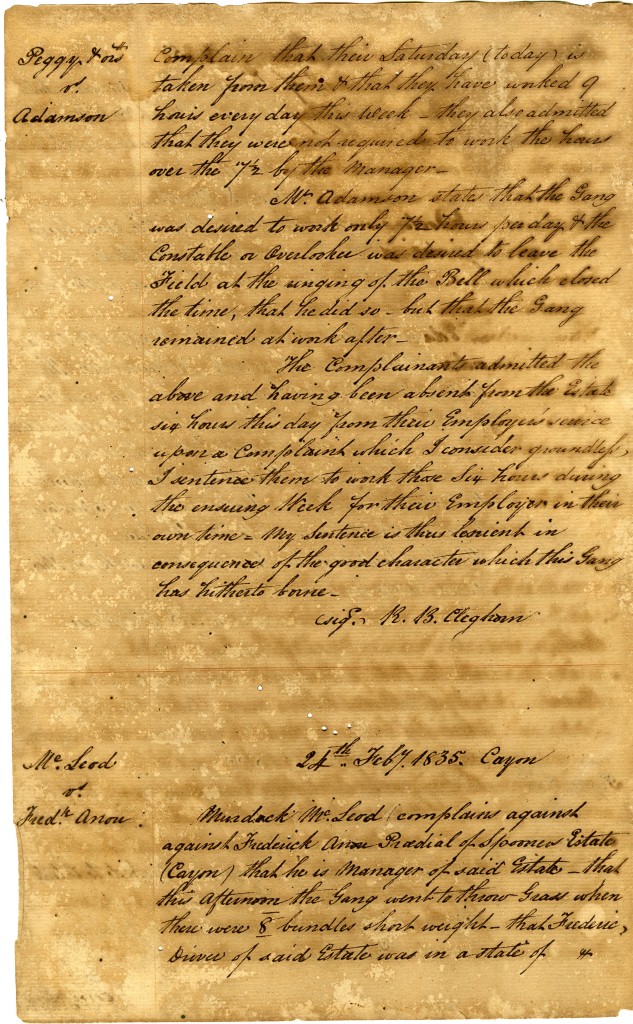 Peggy & ors
vs.
Adamson
Complain that their Saturday (today) is
taken from them & that they have worked 9
hours every day this week – they also admitted
that they were not required to work the hours
over the 7½ by the Manager –
Mr. Adamson states that the Gang
was desired to work only 7½ hours per day & the
Constable or Overlooker was desired to leave the
Field at the ringing of the Bell which closed
the time, that he did so – but that the Gang
remained at work after –
The Complainants admitted the
above and having been absent from the Estate
six hours this day from their Employer's service
upon a Complaint which I consider groundless,
I sentence them to work those Six hours during
the ensuing Week for their Employer in their
own time – My Sentence is thus lenient in
consequence of the good character which this Gang
has hitherto borne –
(sigd.) R. B. Cleghorn
Mc. Leod
vs.
Fredk. Anou
24th. Feby. 1835. Cayon
Murdock Mc. Leod complains against
against Frederick Anou Prædial of Spooners Estate
(Cayon) that he is Manager of said Estate – that
this Afternoon the Gang went to throw Grass when
there were 8 bundles short weight – that Frederic,
Driver of said Estate was in a state of &